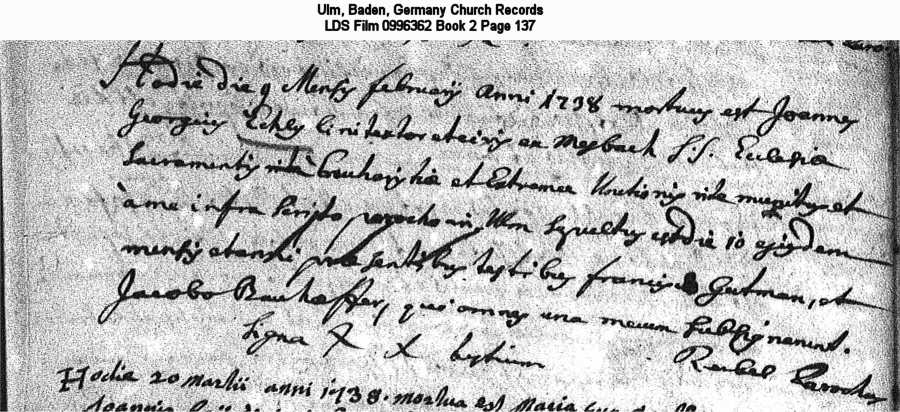 Ulm, Baden, Germany Church Records
LDS Film 0996362 Book 2 Page 137
Hodie die 9 Mensis februarij Anni 1738 mortuus est Joannes
Georgius Eckly linitextor et civis ex Mesbach S.S. Eclesiæ
Sacramentis Eucharistiæ et Extremæ Unctionis rite munitus et
à me infra scripto parocho in Ulm sepultus est die 10 ejusdem
mensis et anni præsentibus testibus francisco Gutman, et
Jacobo Bauhaffer, qui omnes una mecum subsignarunt.
Signa X X testium
Parochus
Hodie 20 martii anni 1738. mortua est Maria
Joannis